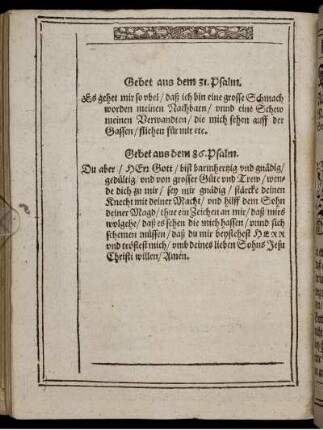 Gebet aus dem 31. Psalm.
Es gehet mir so vbel / daß ich bin eine grosse Schmach
worden meinen Nachbarn / vnnd eine Schew
meinen Verwandten / die mich sehen auff der
Gassen / fliehen für mir etc.
Gebet aus dem 86. Psalm.
Du aber / HErr Gott / bist barmhertzig vnd gnädig /
gedültig vnd von grosser Güte vnd Trew / wen-
de dich zu mir / sey mir gnädig / stärcke deinen
Knecht mit deiner Macht / vnd hilff dem Sohn
deiner Magd / thue ein Zeichen an mir / daß mirs
wolgehe / daß es sehen die mich hassen / vnnd sich
schemen müssen / daß du mir beystehest HERR
vnd tröstest mich / vmb deines lieben Sohns Jesu
Christi willen / Amen.